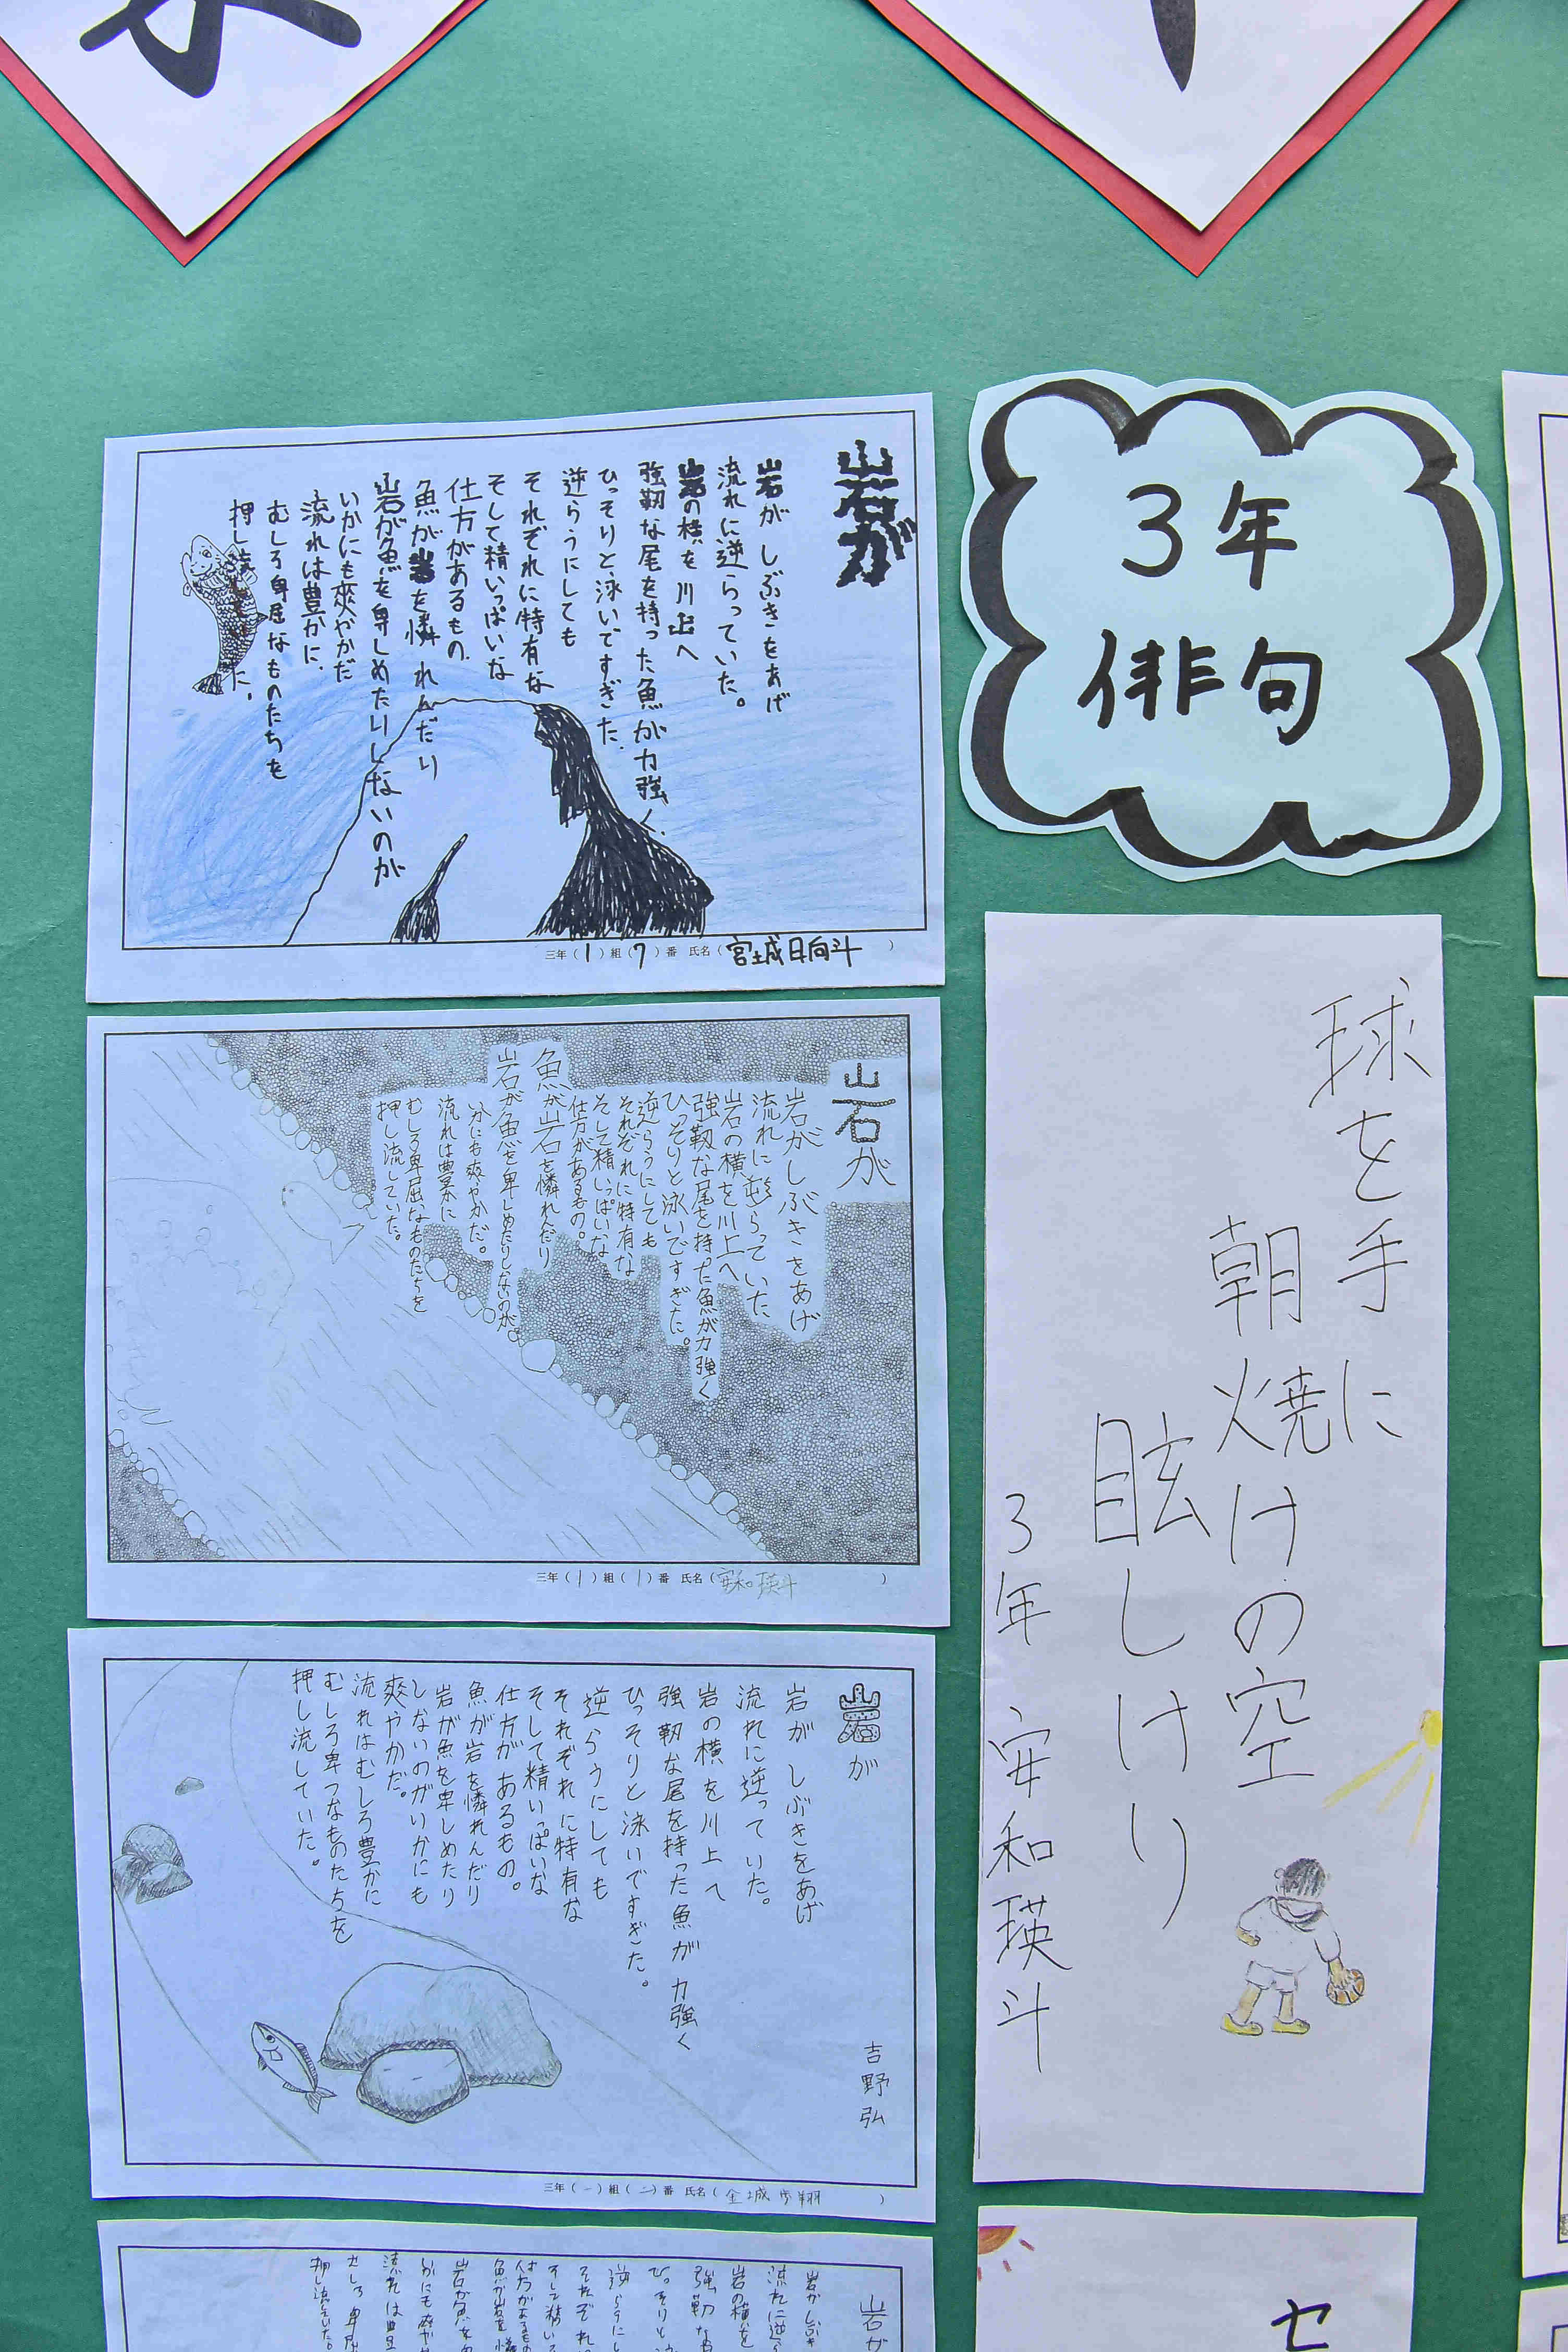 3年
俳句
球を手に
朝焼けの空
眩しけり
3年 安和瑛斗
セ
岩が
岩が しぶきをあげ
流れに逆らっていた。
岩の横を川上へ
強靭な尾を持った魚が力強く
ひっそりと泳いですぎた。
逆らうにしても
それぞれに特有な
そして精いっぱいな
仕方があるもの。
魚が岩を憐れんだり
岩が魚を卑しめたりしないのが
いかにも爽やかだ
流れは豊かに
むしろ卑屈なものたちを
押し流
た。
三年(1)組(7)番 氏名(宮城日向斗)
岩が
岩がしぶきをあげ
流れに逆らっていた
岩の横を川上へ
強靭な尾を持った魚が力強く
ひっそりと泳いですぎた。
逆らうにしても
それぞれに特有な
そして精いっぱいな
仕方があるもの。
魚が岩を憐れんだり
岩が魚を卑しめたりしないのが
にも爽やかだ。
流れは豊かに
むしろ卑屈なものたちを
押し流していた。
三年(1)組(1)番 氏名(安和瑛斗)
岩が
吉野弘
岩が しぶきをあげ
流れに逆って いた。
岩の横を川上へ
強靭な尾を持った魚が力強く
ひっそりと泳いですぎた。
逆らうにしても
それぞれに特有な
そして精いっぱいな
仕方があるもの。
魚が岩を憐れんだり
岩が魚を卑しめたり
しないのがいかにも
爽やかだ。
流れはむしろ豊かに
むしろ卑つなものたちを
押し流していた。
三年(一)組(二)番 氏名(金城 翔)
岩が
岩がしぶき
流れに逆ら
岩の横を
強靭な
ひっそりと
逆らうにし
それぞれ
そして精い
仕方があるもの
魚が岩を
岩が魚を
いかにも爽や
流れは豊
むしろ卑屈
押し流していた。